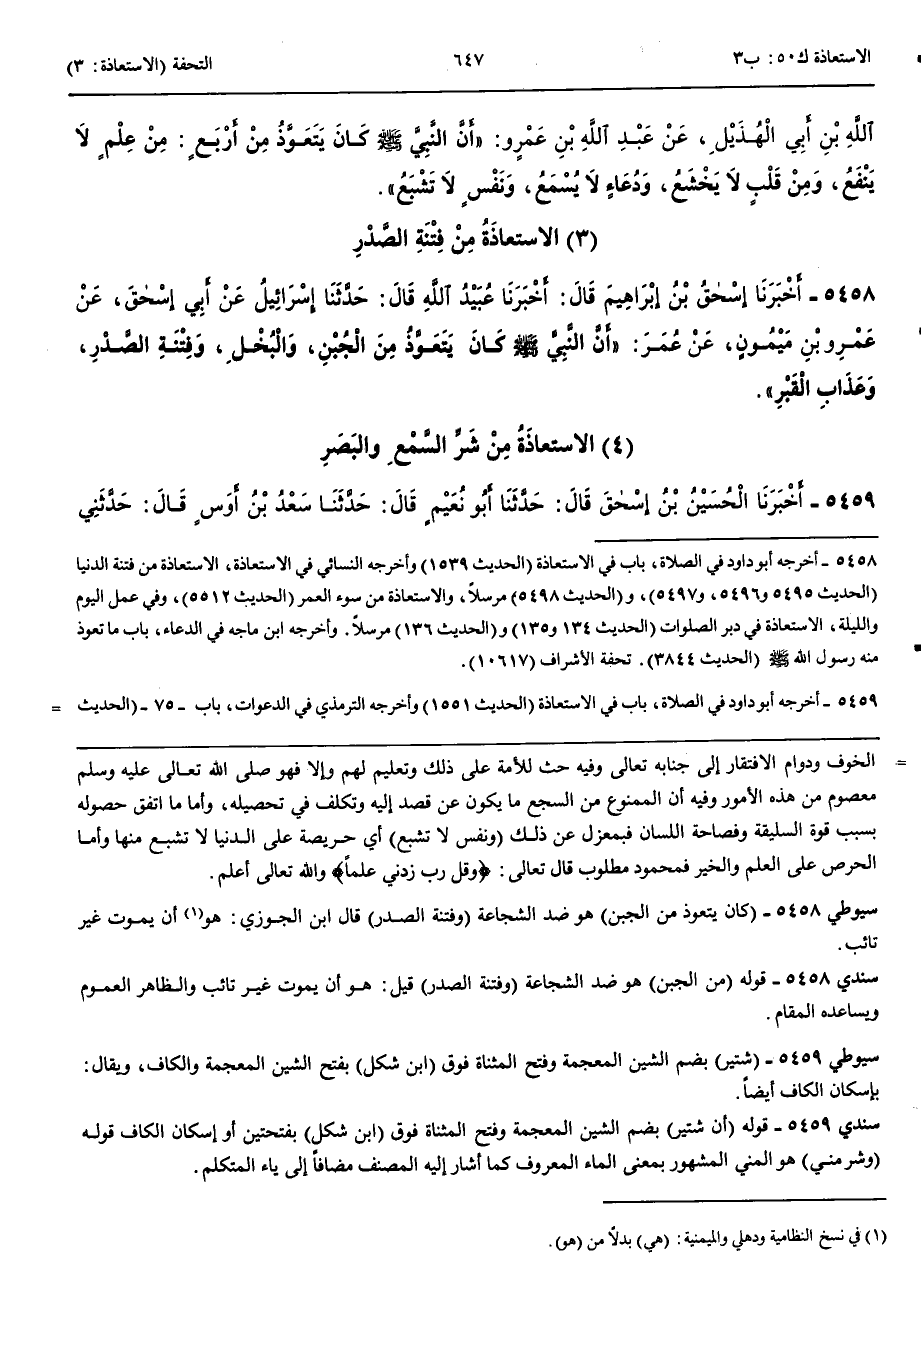 الاستعاذة ك٥٠: ب٣ ٦٤٧ التحفة (الاستعاذة: ٣)
اَللَّهِ بْنِ أَبِي الْهُذَيْلِ، عَنْ عَبْدِ اَللَّهِ بْنِ عَمْرٍو: «أَنَّ النَّبِيَّ ﷺ كَانَ يَتَعَوَّذُ مِنْ أَرْبَعٍ: مِنْ عِلْمٍ لَا
يَنْفَعُ، وَمِنْ قَلْبٍ لَا يَخْشَعُ، وَدُعَاءٍ لَا يُسْمَعُ، وَنَفْسٍ لَا تَشْبَعُ».
(٣) الاستعاذَةُ مِنْ فِتْنَةِ الصَّدْرِ
٥٤٥٨ - أَخْبَرَنَا إِسْحٰقُ بْنُ إِبْرَاهِيمَ قَالَ: أَخْبَرَنَا عُبَيْدُ اَللَّهِ قَالَ: حَدَّثَنَا إِسْرَائِيلُ عَنْ أَبِي إِسْحٰقَ، عَنْ
عَمْرِو بْنِ مَيْمُونٍ، عَنْ عُمَرَ: «أَنَّ النَّبِيَّ ﷺ كَانَ يَتَعَوَّذُ مِنَ الْجُبْنِ، وَالْبُخْلِ، وَفِتْنَةِ الصَّدْرِ،
وَعَذَابِ الْقَبْرِ».
(٤) الاستعاذَةُ مِنْ شَرِّ السَّمْعِ والبَصَرِ
٥٤٥٩ - أَخْبَرَنَا الْحُسَيْنُ بْنُ إِسْحٰقَ قَالَ: حَدَّثَنَا أَبُو نُعَيْمٍ قَالَ: حَدَّثَنَا سَعْدُ بْنُ أَوسٍ قَالَ: حَدَّثَنِي
٥٤٥٨ - أخرجه أبو داود في الصلاة، باب في الاستعاذة (الحديث ١٥٣٩) وأخرجه النسائي في الاستعاذة، الاستعاذة من فتنة الدنيا
(الحديث ٥٤٩٥ و٥٤٩٦، و٥٤٩٧)، و(الحديث ٥٤٩٨) مرسلاً، والاستعاذة من سوء العمر (الحديث ٥٥١٢)، وفي عمل اليوم
والليلة، الاستعاذة في دبر الصلوات (الحديث ١٣٤ و١٣٥) و(الحديث ١٣٦) مرسلاً. وأخرجه ابن ماجه في الدعاء، باب ما تعوذ
منه رسول الله ﷺ (الحديث ٣٨٤٤). تحفة الأشراف (١٠٦١٧).
٥٤٥٩ - أخرجه أبو داود في الصلاة، باب في الاستعاذة (الحديث ١٥٥١) وأخرجه الترمذي في الدعوات، باب - ٧٥ - (الحديث =
= الخوف ودوام الافتقار إلى جنابه تعالى وفيه حث للأمة على ذلك وتعليم لهم وإلا فهو صلى الله تعالى عليه وسلم
معصوم من هذه الأمور وفيه أن الممنوع من السجع ما يكون عن قصد إليه وتكلف في تحصيله، وأما ما اتفق حصوله
بسبب قوة السليقة وفصاحة اللسان فبمعزل عن ذلك (ونفس لا تشبع) أي حريصة على الدنيا لا تشبع منها وأما
الحرص على العلم والخير فمحمود مطلوب قال تعالى: ﴿وقل رب زدني علماً﴾ والله تعالى أعلم.
سيوطي ٥٤٥٨ - (كان يتعوذ من الجبن) هو ضد الشجاعة (وفتنة الصدر) قال ابن الجوزي: هو(١) أن يموت غير
تائب.
سندي ٥٤٥٨ - قوله (من الجبن) هو ضد الشجاعة (وفتنة الصدر) قيل: هو أن يموت غير تائب والظاهر العموم
ويساعده المقام.
سيوطي ٥٤٥٩ - (شتير) بضم الشين المعجمة وفتح المثناة فوق (ابن شكل) بفتح الشين المعجمة والكاف، ويقال:
بإسكان الكاف أيضاً.
سندي ٥٤٥٩ - قوله (أن شتير) بضم الشين المعجمة وفتح المثناة فوق (ابن شكل) بفتحتين أو إسكان الكاف قوله
(وشر مني) هو المني المشهور بمعنى الماء المعروف كما أشار إليه المصنف مضافاً إلى ياء المتكلم.
(١) في نسخ النظامية ودهلي والميمنية: (هي) بدلاً من (هو).